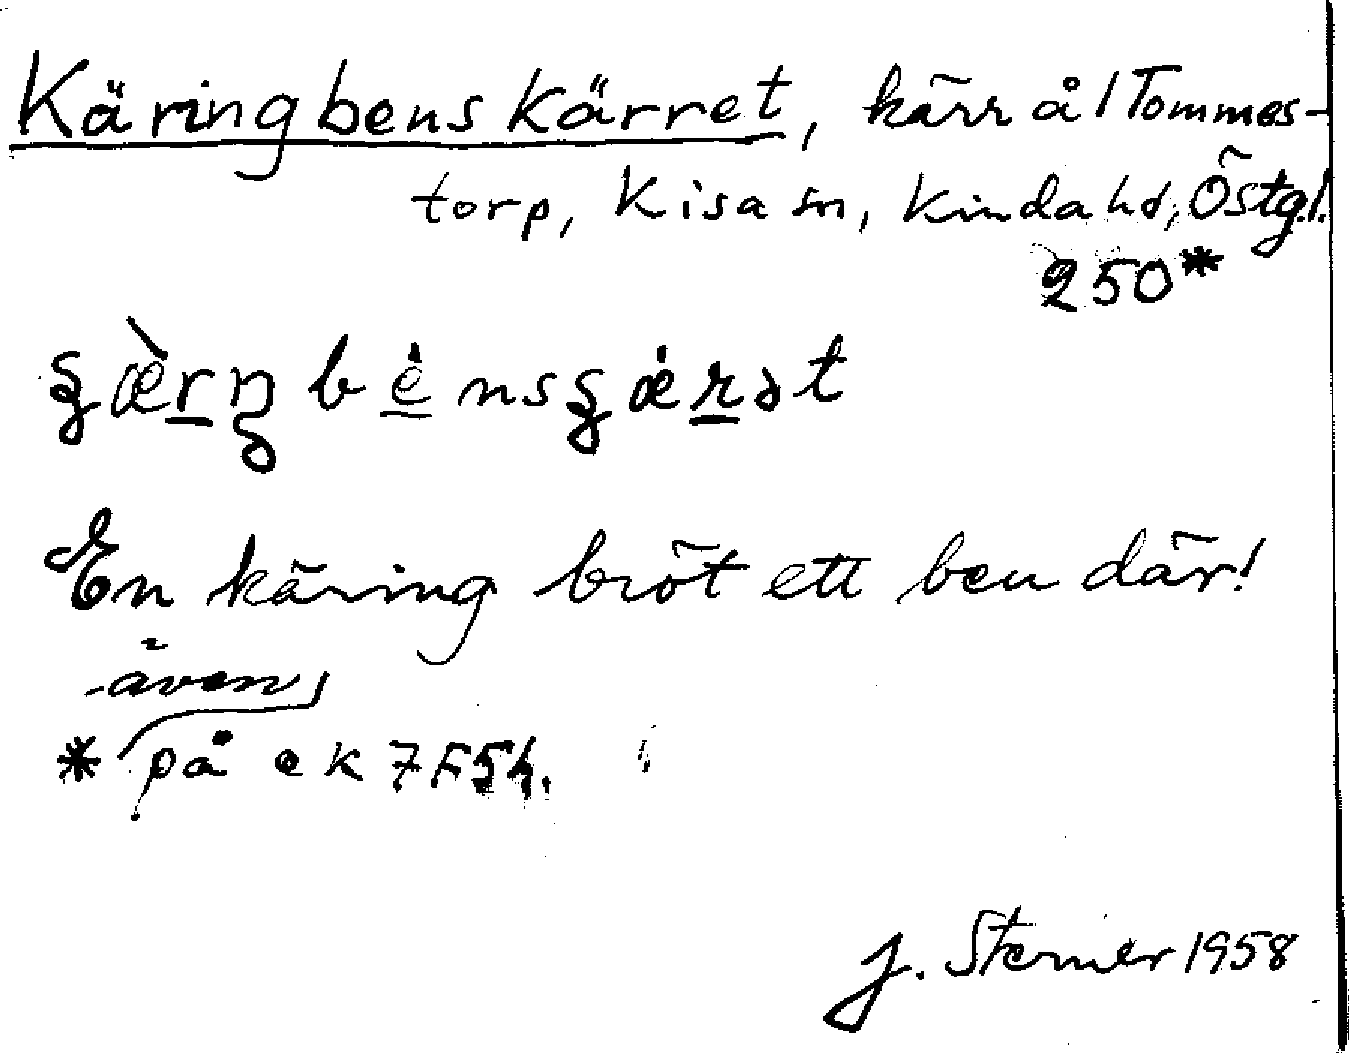 Käringbenskärret, kärr å 1 Tommes-
torp, Kisa sn, Kinda hd, Östg.l.
250*
En käring bröt ett ben där!
även
* på ek 7F5h.
J. Sterner 1958